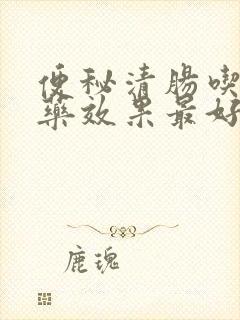 便秘清腸喫
藥效果最好
鹿瑰